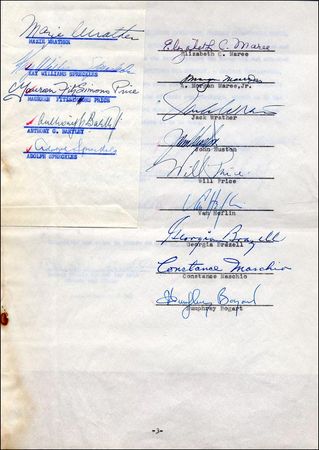 Marie Wrather
MARIE WRATHER
Kay Williams Spreckles
KAY WILLIAMS SPRECKLES
Maureen FitzSimons Price
MAUREEN FITZSIMONS PRICE
Anthony G. Bartley
ANTHONY G. BARTLEY
Adolph Spreckles
ADOLPH SPRECKLES
Elizabeth C. Maree
Elizabeth C. Maree
Morgan Maree
A. Morgan Maree, Jr.
Jack Wrather
Jack Wrather
John Huston
John Huston
Will Price
Will Price
Van Heflin
Van Heflin
Georgia Brazell
Georgia Brazell
Constance Maschio
Constance Maschio
Humphrey Bogart
Humphrey Bogart
-3-